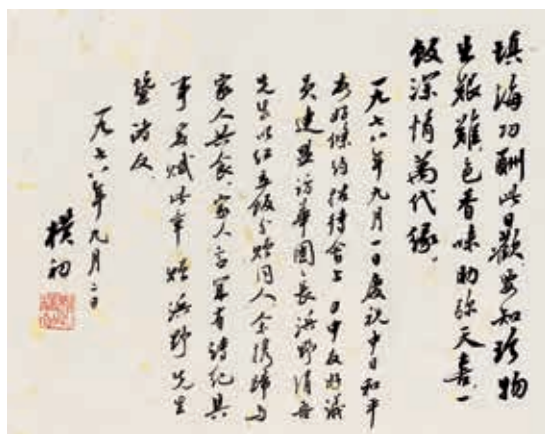 填海功酬此日歡，要知珍物
出艱難。色香味助弥天喜，一
飯深情萬代緣。
一九七八年九月一日慶祝中日和平
友好條約招待會上日中友好議
員連盟訪華團々長浜野清吾
先生以红豆飯分贻同人余携歸与
家人共食，家人言宜有詩纪其
事 爰賦此章 贻浜野先生
暨諸友
一九七八年九月二日
樸初